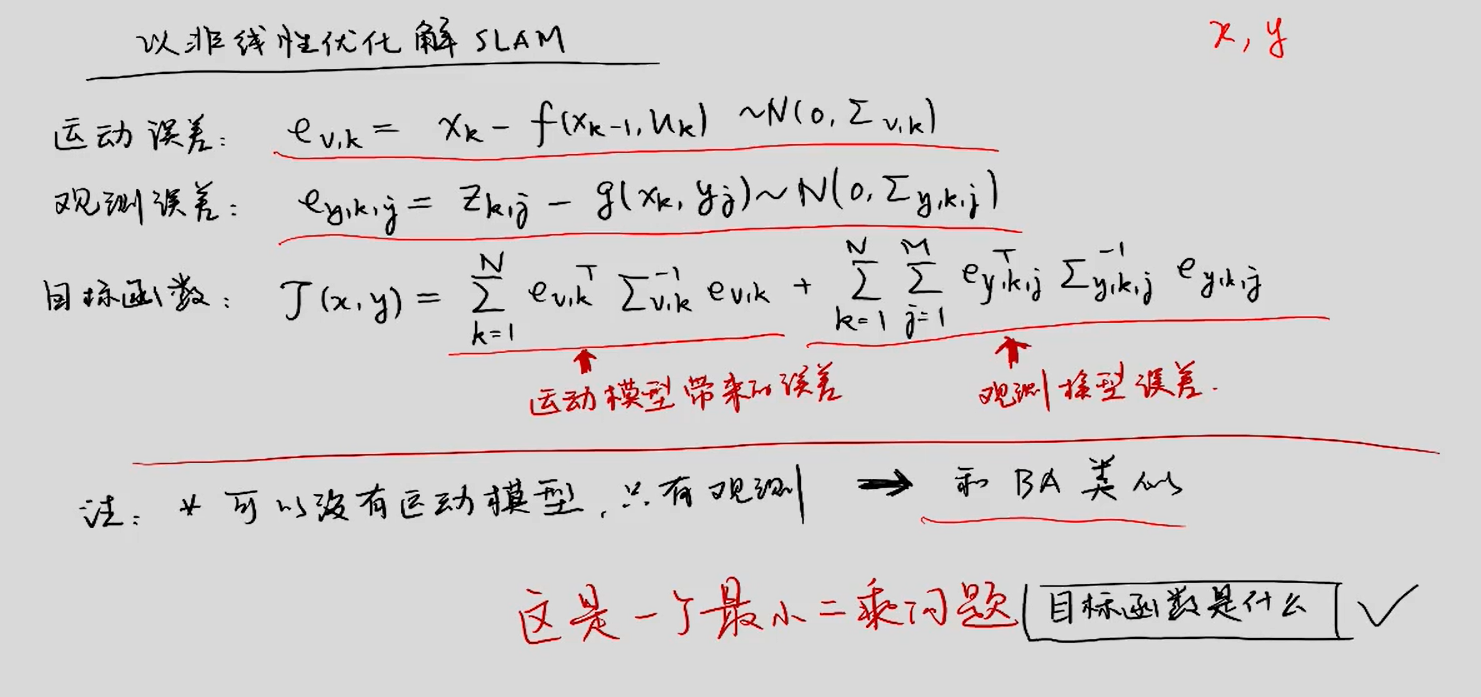 以非线性优化解 SLAM
x, y
运动误差: e_{v,k} = x_k - f(x_{k-1}, u_k) ~N(0, Σ_{v,k})
观测误差: e_{y,k,j} = z_{k,j} - g(x_k, y_j) ~ N(0, Σ_{y,k,j})
目标函数: J(x,y) = \sum_{k=1}^{N} e_{v,k}^T Σ_{v,k}^{-1} e_{v,k} + \sum_{k=1}^{N} \sum_{j=1}^{M} e_{y,k,j}^T Σ_{y,k,j}^{-1} e_{y,k,j}
运动模型带来的误差
观测模型误差.
注: * 可以没有运动模型, 只有观测 → 和 BA 类似
这是一个最小二乘问题 目标函数是什么 ✓